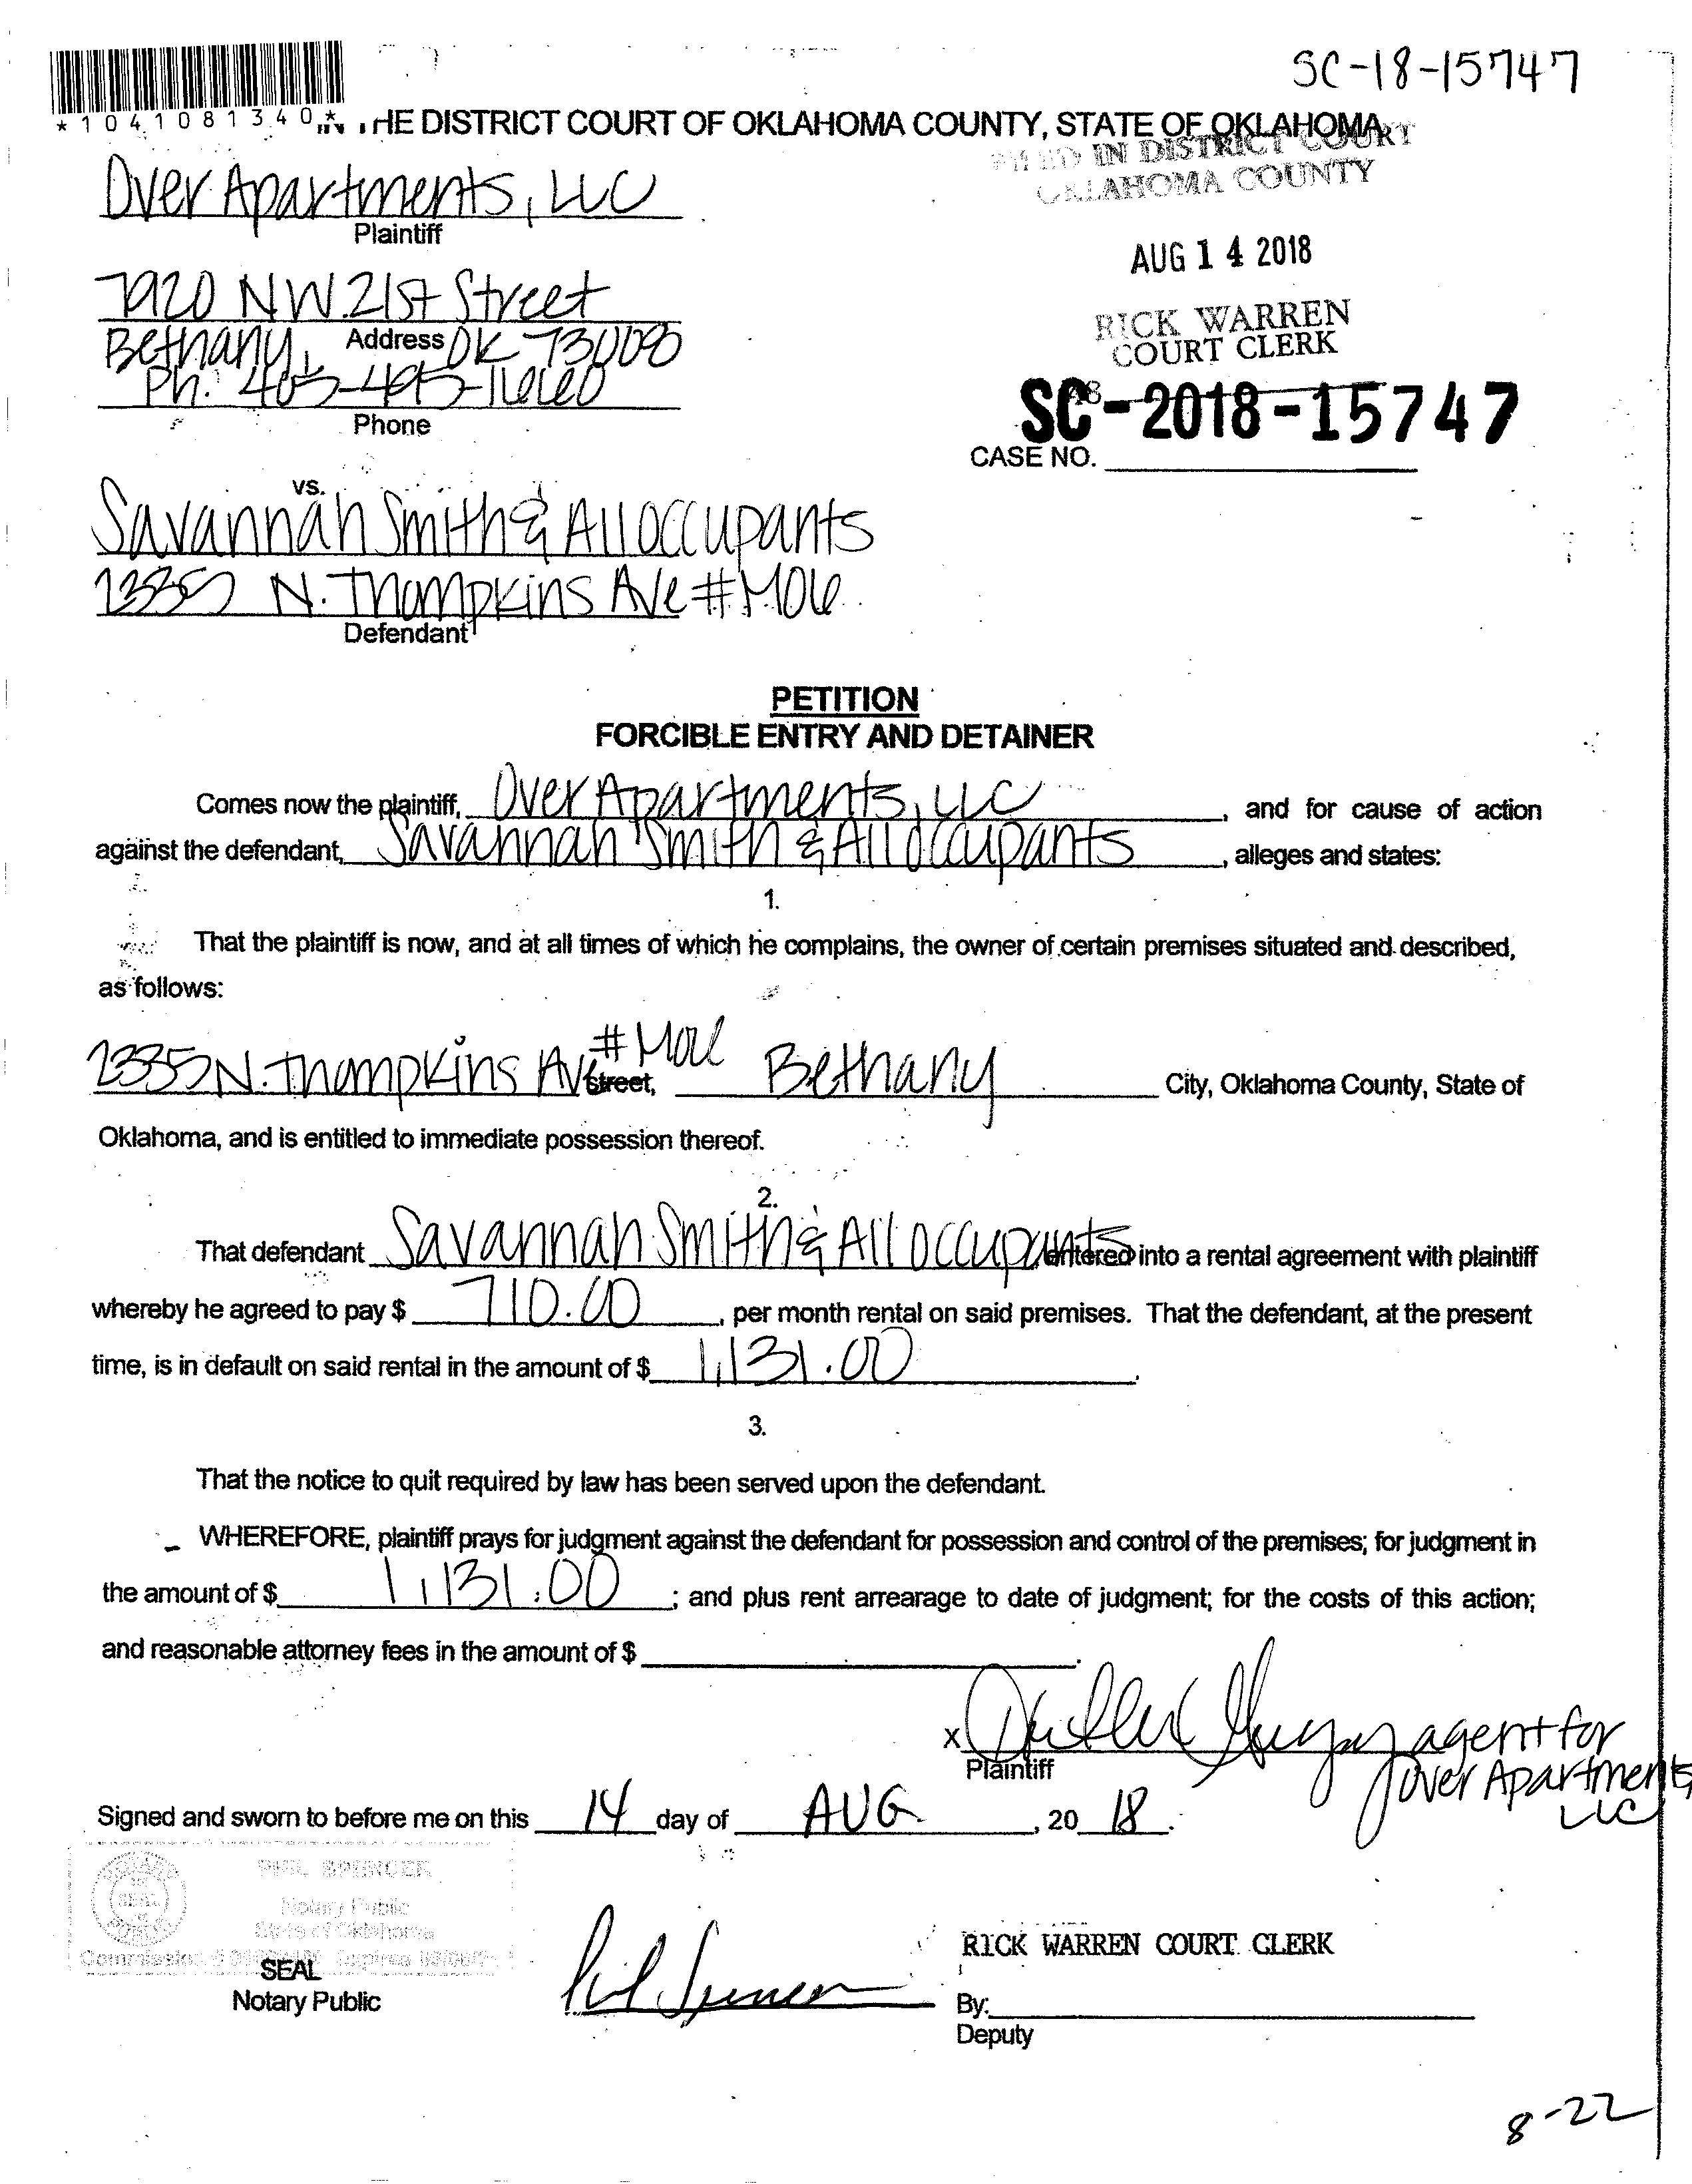 SC-18-15747
*1041081340*
HE DISTRICT COURT OF OKLAHOMA COUNTY, STATE OF OKLAHOMA
IN DISTRICT COURT
OKLAHOMA COUNTY
Over Apartments, LLC
Plaintiff
AUG 14 2018
7920 NW. 21st Street
RICK WARREN
COURT CLERK
Bethany, Address OK 73008
Ph: 405-495-1660
Phone
SC-2018-15747
CASE NO.
vs.
Savannah Smith & All occupants
N. Thompkins Ave #
Defendant
PETITION
FORCIBLE ENTRY AND DETAINER
Comes now the plaintiff, Over Apartments, LLC, and for cause of action
against the defendant, Savannah Smith & All occupants, alleges and states:
1.
That the plaintiff is now, and at all times of which he complains, the owner of certain premises situated and described,
as follows:
2335 N. Thompkins Ave # Street, Bethany City, Oklahoma County, State of
Oklahoma, and is entitled to immediate possession thereof.
2.
That defendant Savannah Smith & All occupants, entered into a rental agreement with plaintiff
whereby he agreed to pay $ 710.00, per month rental on said premises. That the defendant, at the present
time, is in default on said rental in the amount of $ 1,131.00.
3.
That the notice to quit required by law has been served upon the defendant.
WHEREFORE, plaintiff prays for judgment against the defendant for possession and control of the premises; for judgment in
the amount of $ 1,131.00; and plus rent arrearage to date of judgment; for the costs of this action;
and reasonable attorney fees in the amount of $.
X agent for
Plaintiff Over Apartments
LLC
Signed and sworn to before me on this 14 day of AUG, 20 18.
PHIL SPENCER
Notary Public
State of Oklahoma
SEAL
Notary Public
Phil Spencer
RICK WARREN COURT CLERK
By:
Deputy
8-22